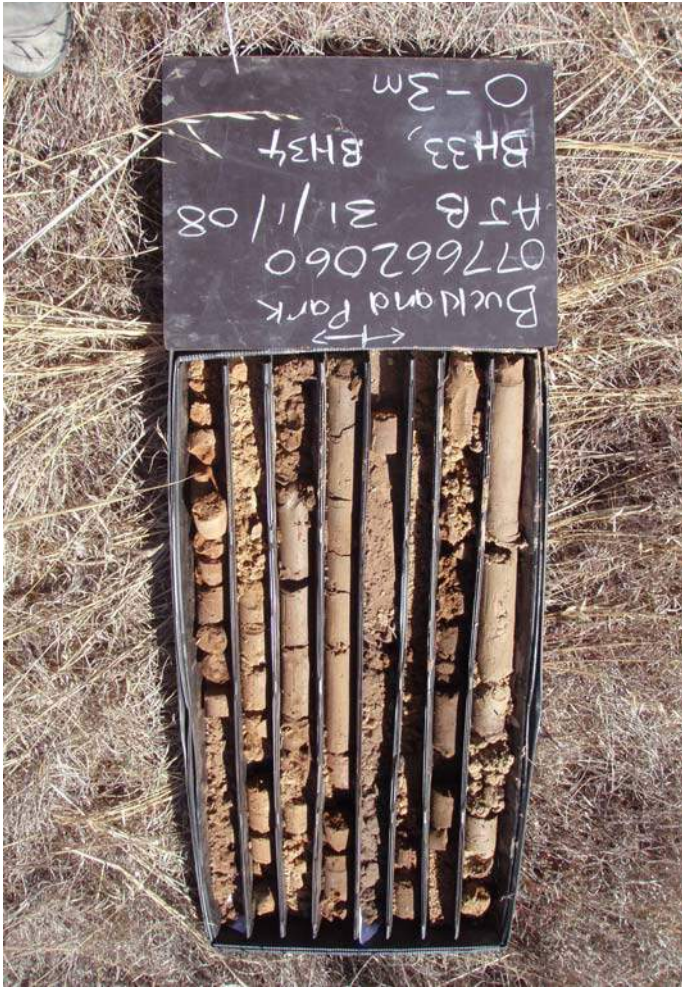 Buckland Park
077662060
AJB 31/1/08
BH33, BH34
0-3m